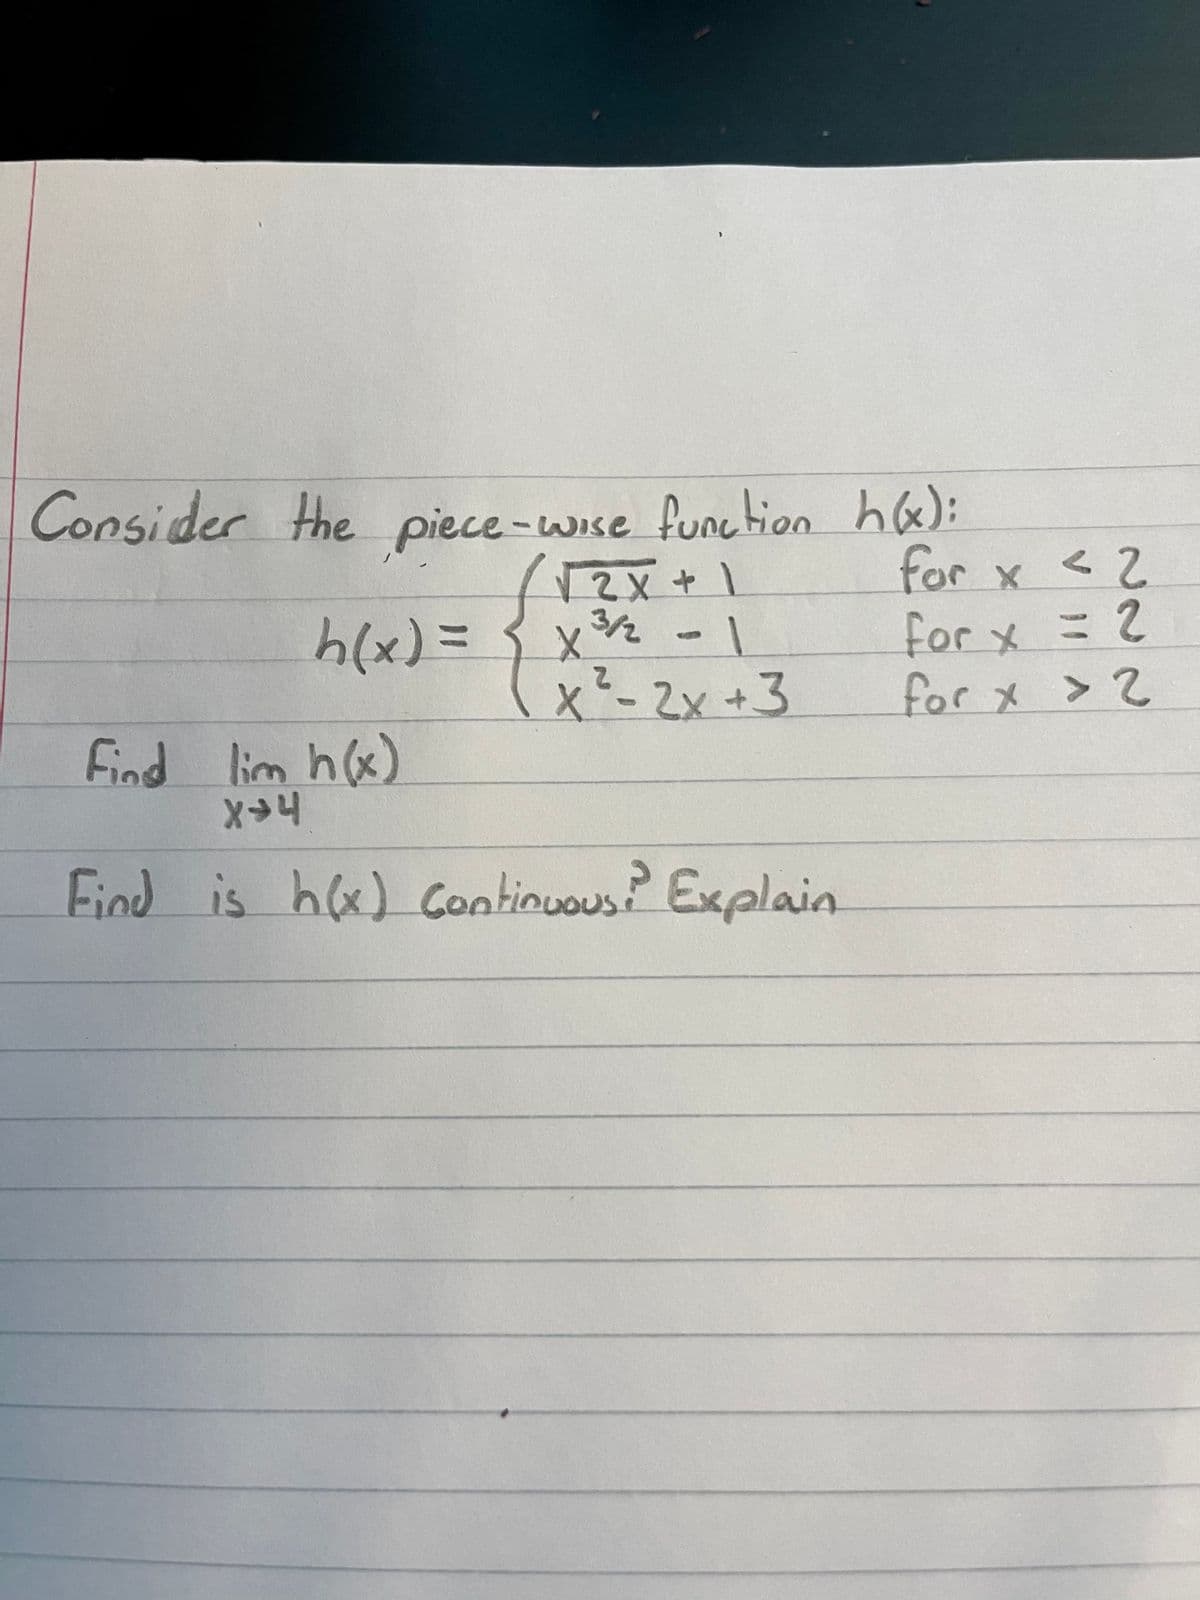 Consider the piece-wise function h(x):
√2x + 1 for x < 2
h(x) = { x^3/2 - 1 for x = 2
x² - 2x + 3 for x > 2
Find lim h(x)
x→4
Find is h(x) continuous? Explain